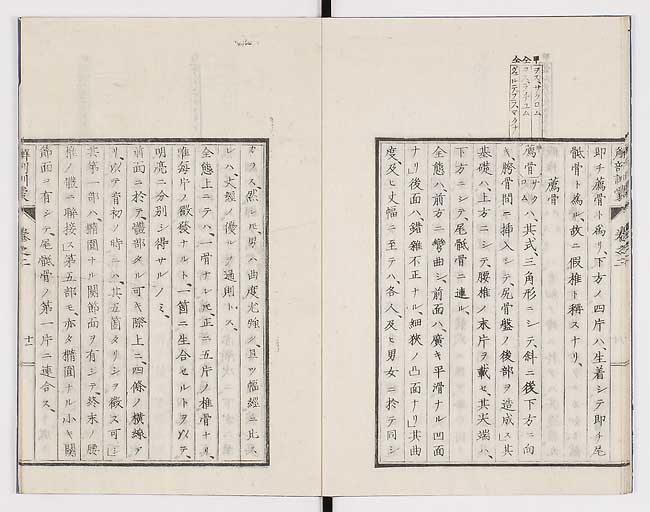 即チ薦骨ト為リ、下方ノ四片ハ、生着シテ即チ尾
骶骨ト為ル、故ニ假椎ト稱スナリ、
薦骨
薦骨ハ、其式、三角形ニシテ、斜ニ後下方ニ向
キ、胯骨間ニ挿入シテ、尻骨盤ノ後部ヲ造成ス其
基礎ハ、上方ニシテ、腰椎ノ末片ヲ載セ、其尖端ハ、
下方ニシテ、尾骶骨ニ連ル、
全態ハ、前方ニ彎曲シ、前面ハ、廣キ平滑ナル凹面
ナリ、後面ハ、錯雜不正ナル細狹ノ凸面ナリ」其曲
度及ヒ丈幅ニ至テハ、各人、及ヒ男女ニ於テ同シ
カラス、然レ𪜈、男ハ曲度尤強ク、且ツ幅經ニ比ス
レハ、丈經ノ優ルヲ通則トス、
全態上ニテハ、一骨ナレ𪜈、正ニ五片ノ椎骨ナリ、
惟每片ノ徵發ナルト、一箇ニ生合セルトヲ以テ、
明亮ニ分別シ得サルノミ、
前面ニ於テ、體部タル可キ際上ニ、四條ノ橫線ア
リ、以テ育初ノ時ニハ、其五箇タリシヲ徵ス可シ」
其第一部ハ橢圓ナル關節面ヲ有シテ、終末ノ腰
椎ノ體ニ聯接シ」第五部モ、亦タ橢圓ナル小キ關
節面ヲ有シテ、尾骶骨ノ第一片ニ連合ス、
解剖訓蒙
卷之二
十一